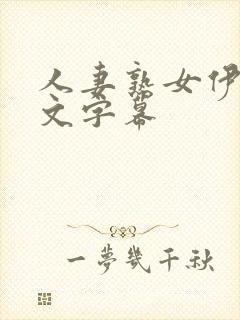 人妻熟女伊
文字幕
一夢幾千秋